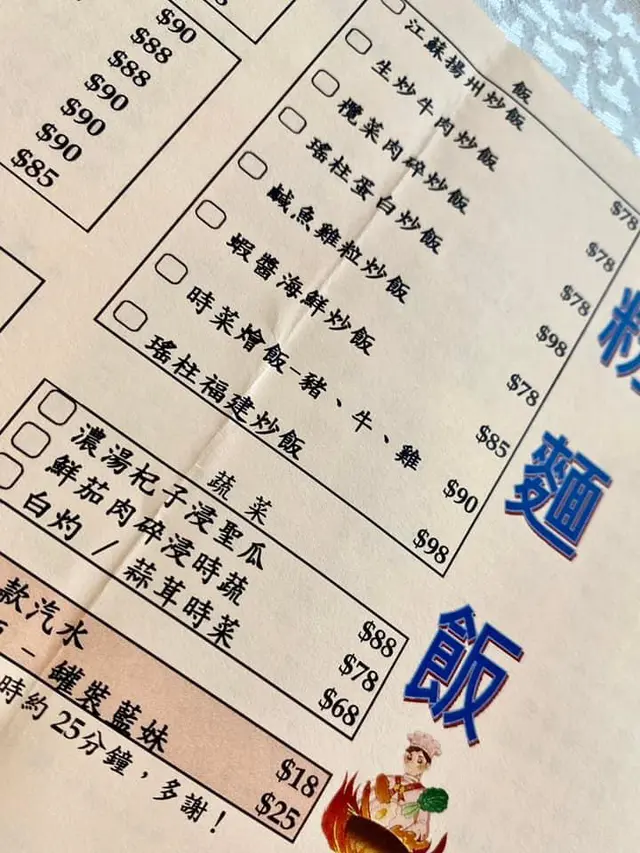 $90
$88
$88
$90
$90
$90
$85
飯
江蘇揚州炒飯 $78
生炒牛肉炒飯 $78
欖菜肉碎炒飯 $78
瑤柱蛋白炒飯 $98
鹹魚雞粒炒飯 $78
蝦醬海鮮炒飯 $85
時菜燴飯-豬、牛、雞 $90
瑤柱福建炒飯 $98
蔬菜
濃湯杞子浸聖瓜 $88
鮮茄肉碎浸時蔬 $78
白灼 / 蒜茸時菜 $68
款汽水 $18
- 罐裝藍妹 $25
時約 25分鐘，多謝！
麵
飯